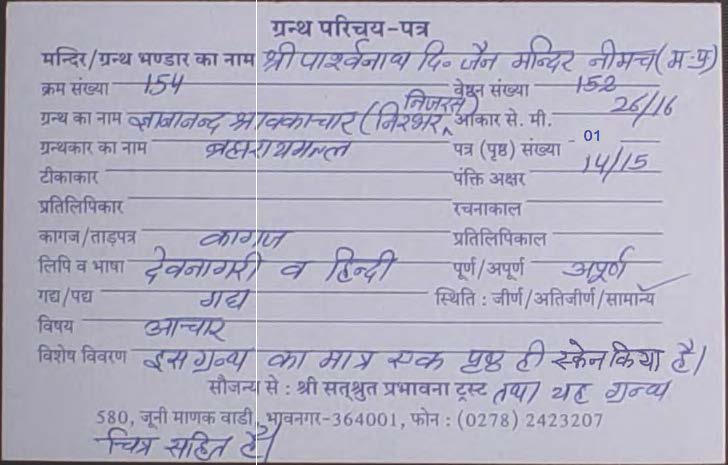 ग्रन्थ परिचय-पत्र
मन्दिर/ग्रन्थ भण्डार का नाम श्री पार्श्वनाथ दि॰ जैन मन्दिर नीमच (म॰प्र)
क्रम संख्या 154 वेष्टन संख्या 152
ग्रन्थ का नाम ज्ञानानन्द श्रावकाचार (निरभर निजरस) आकार से. मी. 26/16
ग्रन्थकार का नाम ब्रह्मरायमल्ल पत्र (पृष्ठ) संख्या 01
टीकाकार पंक्ति अक्षर 14/15
प्रतिलिपिकार रचनाकाल
कागज/ताड़पत्र कागज प्रतिलिपिकाल
लिपि व भाषा देवनागरी व हिन्दी पूर्ण/अपूर्ण अपूर्ण
गद्य/पद्य गद्य स्थिति : जीर्ण/अतिजीर्ण/सामान्य
विषय आचार
विशेष विवरण इस ग्रन्थ का मात्र एक पृष्ठ ही स्केन किया है।
सौजन्य से : श्री सत्श्रुत प्रभावना ट्रस्ट तथा यह ग्रन्थ
580, जूनी माणक वाडी, भावनगर-364001, फोन : (0278) 2423207
चित्र सहित है।